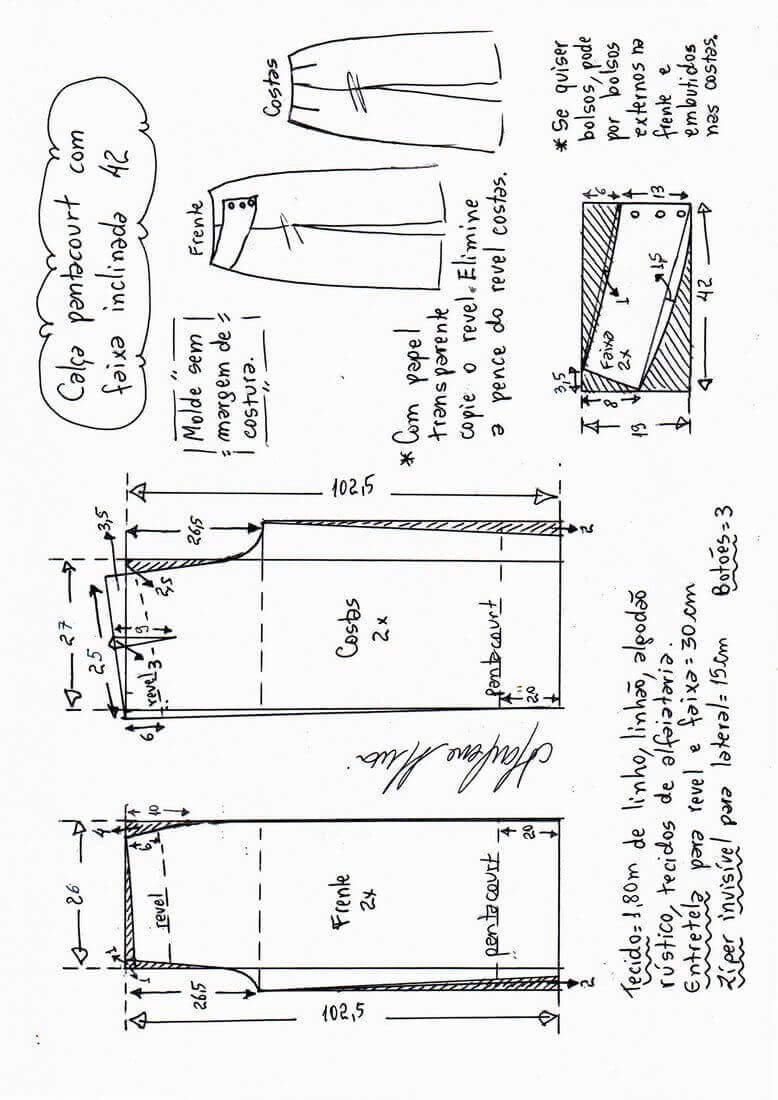 Calça pantacourt com
faixa inclinada 42
Costas
Frente
* Se quiser
bolsos, pode
por bolsos
externos na
frente e
embutidos
nas costas.
Molde sem
margem de
costura.
* Com papel
transparente
copie o revel. Elimine
a pence do revel costas.
6
13
1
1,5
Faixa
2x
3,5
8
19
42
102,5
26,5
3,5
2,5
27
25
9
3
revel
6
Costas
2x
pantacourt
20
2
26
4
10
6
revel
1
1
26,5
Frente
2x
pantacourt
20
2
102,5
Tecido= 1,80m de linho, linhão, algodão
rústico, tecidos de alfaiataria.
Entretela para revel e faixa= 30cm
Zíper invisível para lateral= 15cm Botões= 3